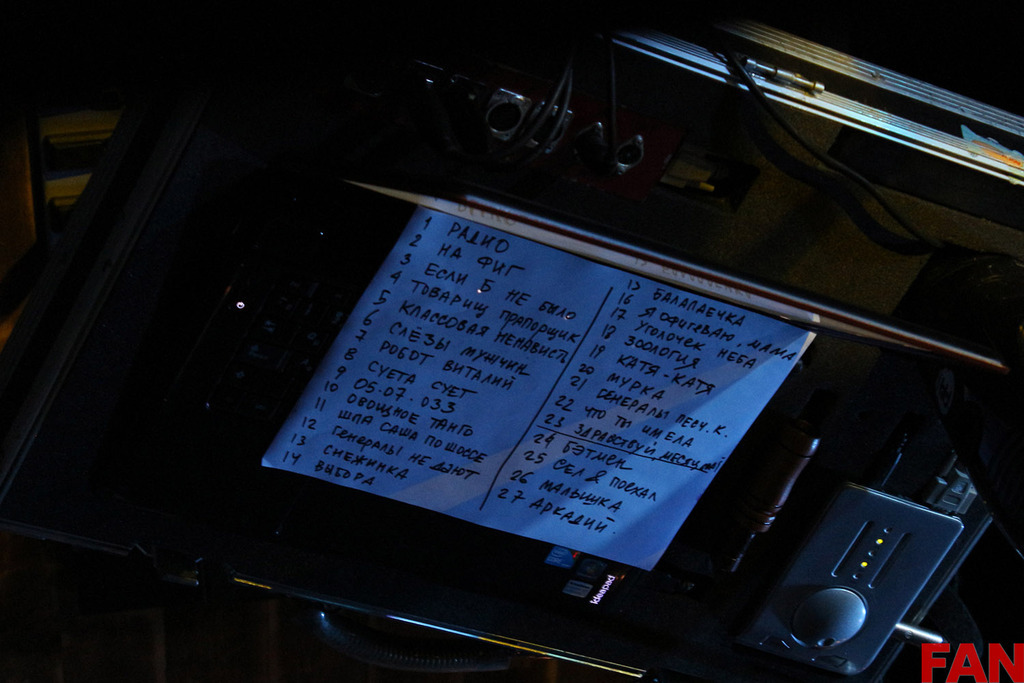 1 РАДИО
2 НА ФИГ
3 ЕСЛИ Б НЕ БЫЛО
4 ТОВАРИЩ ПРАПОРЩИК
5 КЛАССОВАЯ НЕНАВИСТЬ
6 СЛЁЗЫ МУЖЧИН
7 РОБОТ ВИТАЛИЙ
8 СУЕТА СУЕТ
9 05.07.033
10 ОВОЩНОЕ ТАНГО
11 ШЛА САША ПО ШОССЕ
12 ГЕНЕРАЛЫ НЕ ДАЮТ
13 СНЕЖИНКА
14 ВЫБОРА
15 БАЛАЛАЕЧКА
16 Я ОФИГЕВАЮ, МАМА
17 УГОЛОЧЕК НЕБА
18 ЗООЛОГИЯ
19 КАТЯ-КАТЯ
20 МУРКА
21 ГЕНЕРАЛЫ ПЕСЧ. К.
22 ЧТО ТЫ ИМЕЛА
23 ЗДРАВСТВУЙ
24 БЭТМЕН
25 СЕЛ & ПОЕХАЛ
26 МАЛЫШКА
27 АРКАДИЙ.
ideapad
FAN